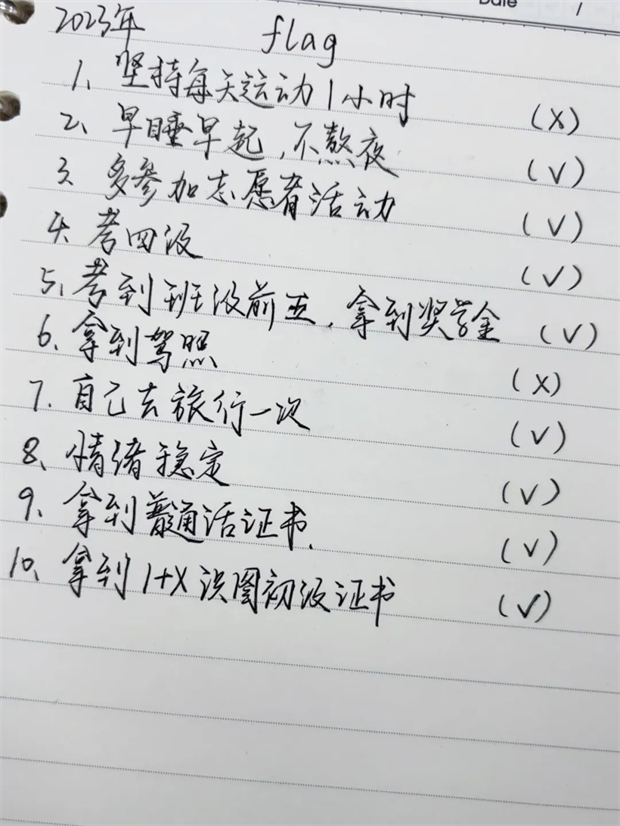 Date /
2023年 flag
1、坚持每天运动1小时 (X)
2、早睡早起，不熬夜 (V)
3、多参加志愿者活动 (V)
4、考四级 (V)
5、考到班级前五，拿到奖学金 (V)
6、拿到驾照 (X)
7、自己去旅行一次 (V)
8、情绪稳定 (V)
9、拿到普通话证书. (V)
10、拿到1+X识图初级证书 (V)